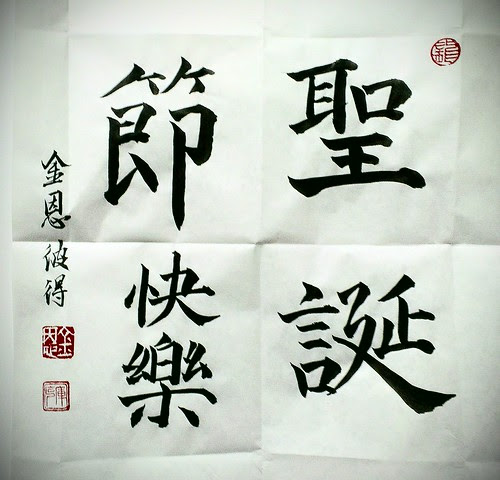 聖誕
節快樂
金恩彼得